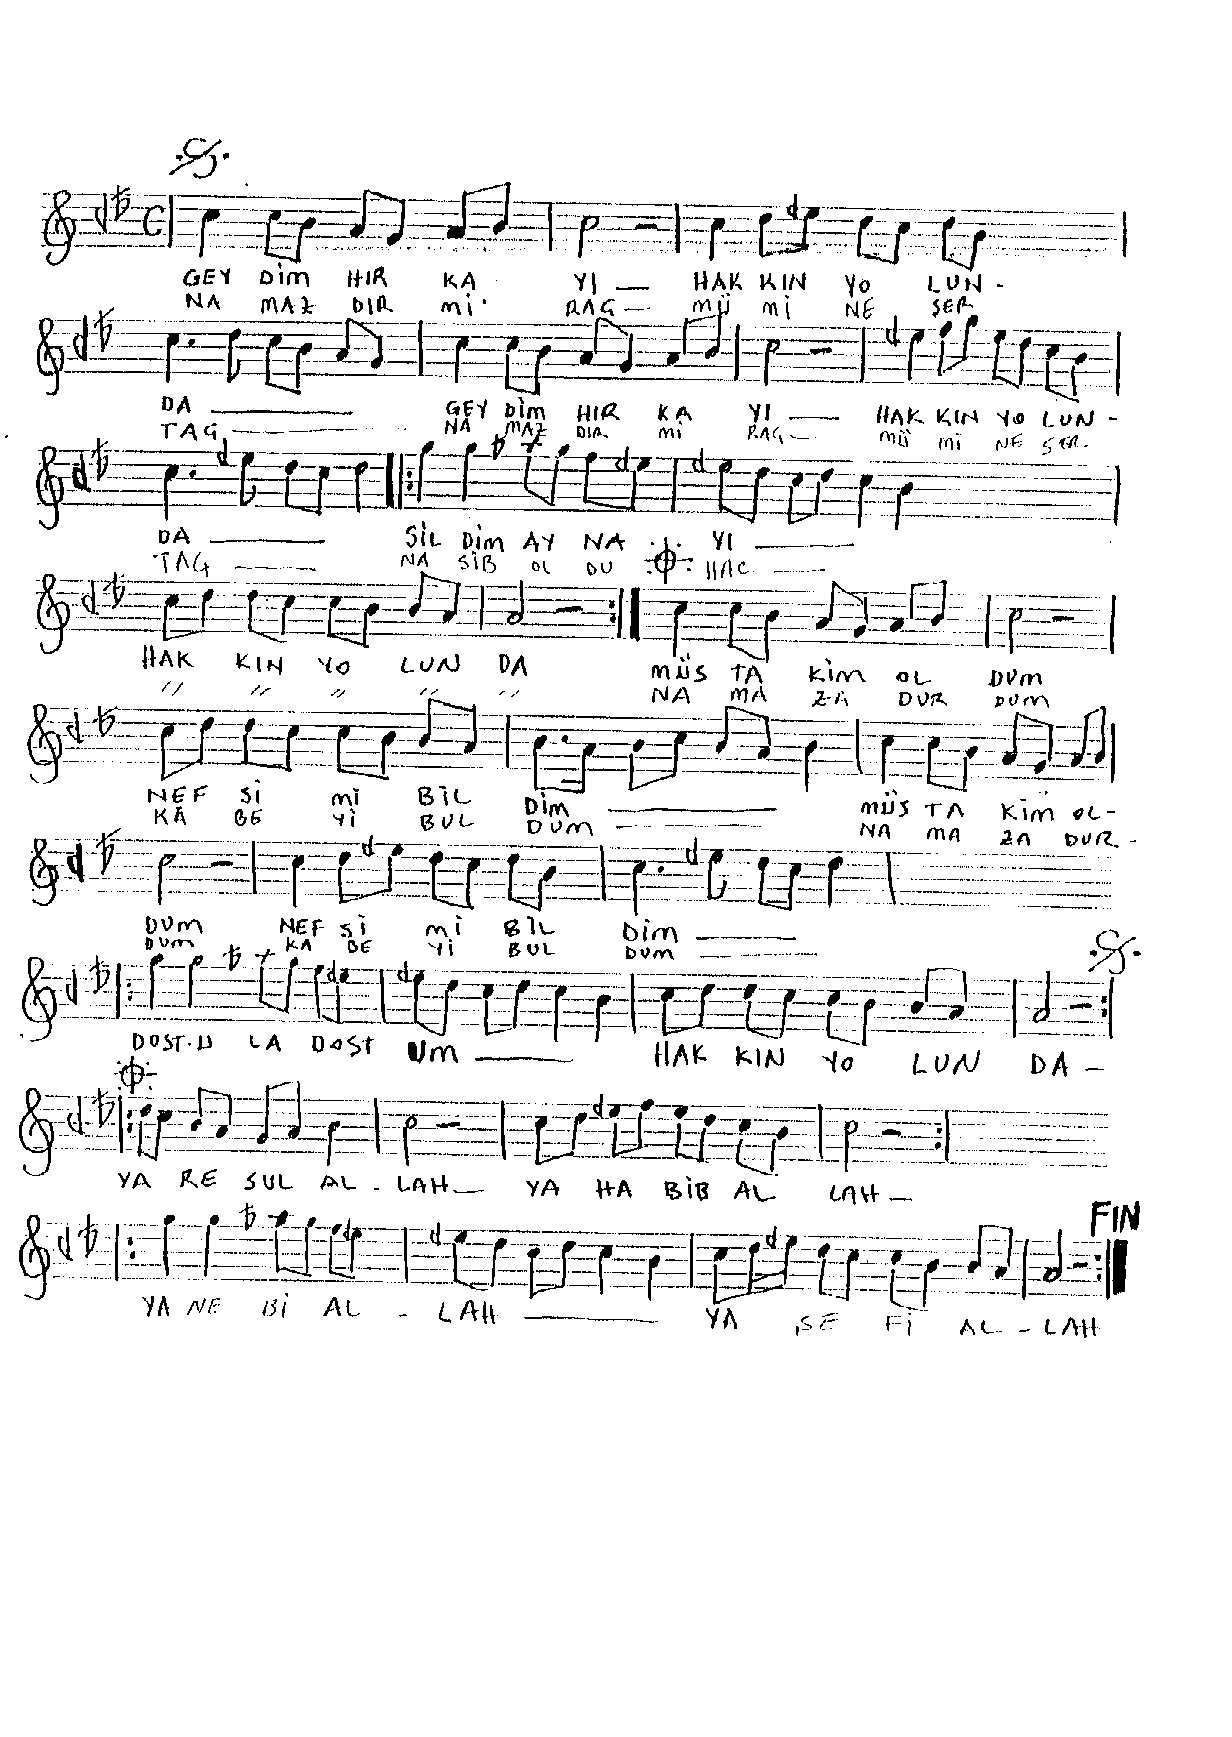 GEY DİM HIR KA YI — HAK KIN YO LUN -
NA MAZ DIR Mİ' RAG — MÜ Mİ NE SER
DA ——— GEY DİM HIR KA YI — HAK KIN YO LUN -
TAG ——— NA MAZ DIR Mİ RAG — MÜ Mİ NE SER.
DA ——— SİL DİM AY NA YI ———
TAG ——— NA SİB OL DU HAC ———
HAK KIN YO LUN DA MÜS TA KİM OL DUM
" " " " " NA MA ZA DUR DUM
NEF Sİ Mİ BİL DİM ——— MÜS TA KİM OL-
KA BE Yİ BUL DUM ——— NA MA ZA DUR. -
DUM NEF Sİ Mİ BİL DİM ———
DUM KA BE Yİ BUL DUM ———
DOST.U LA DOST UM ——— HAK KIN YO LUN DA —
YA RE SUL AL - LAH — YA HA BİB AL LAH —
FIN
YA NE Bİ AL - LAH ——— YA ŞE Fİ AL - LAH